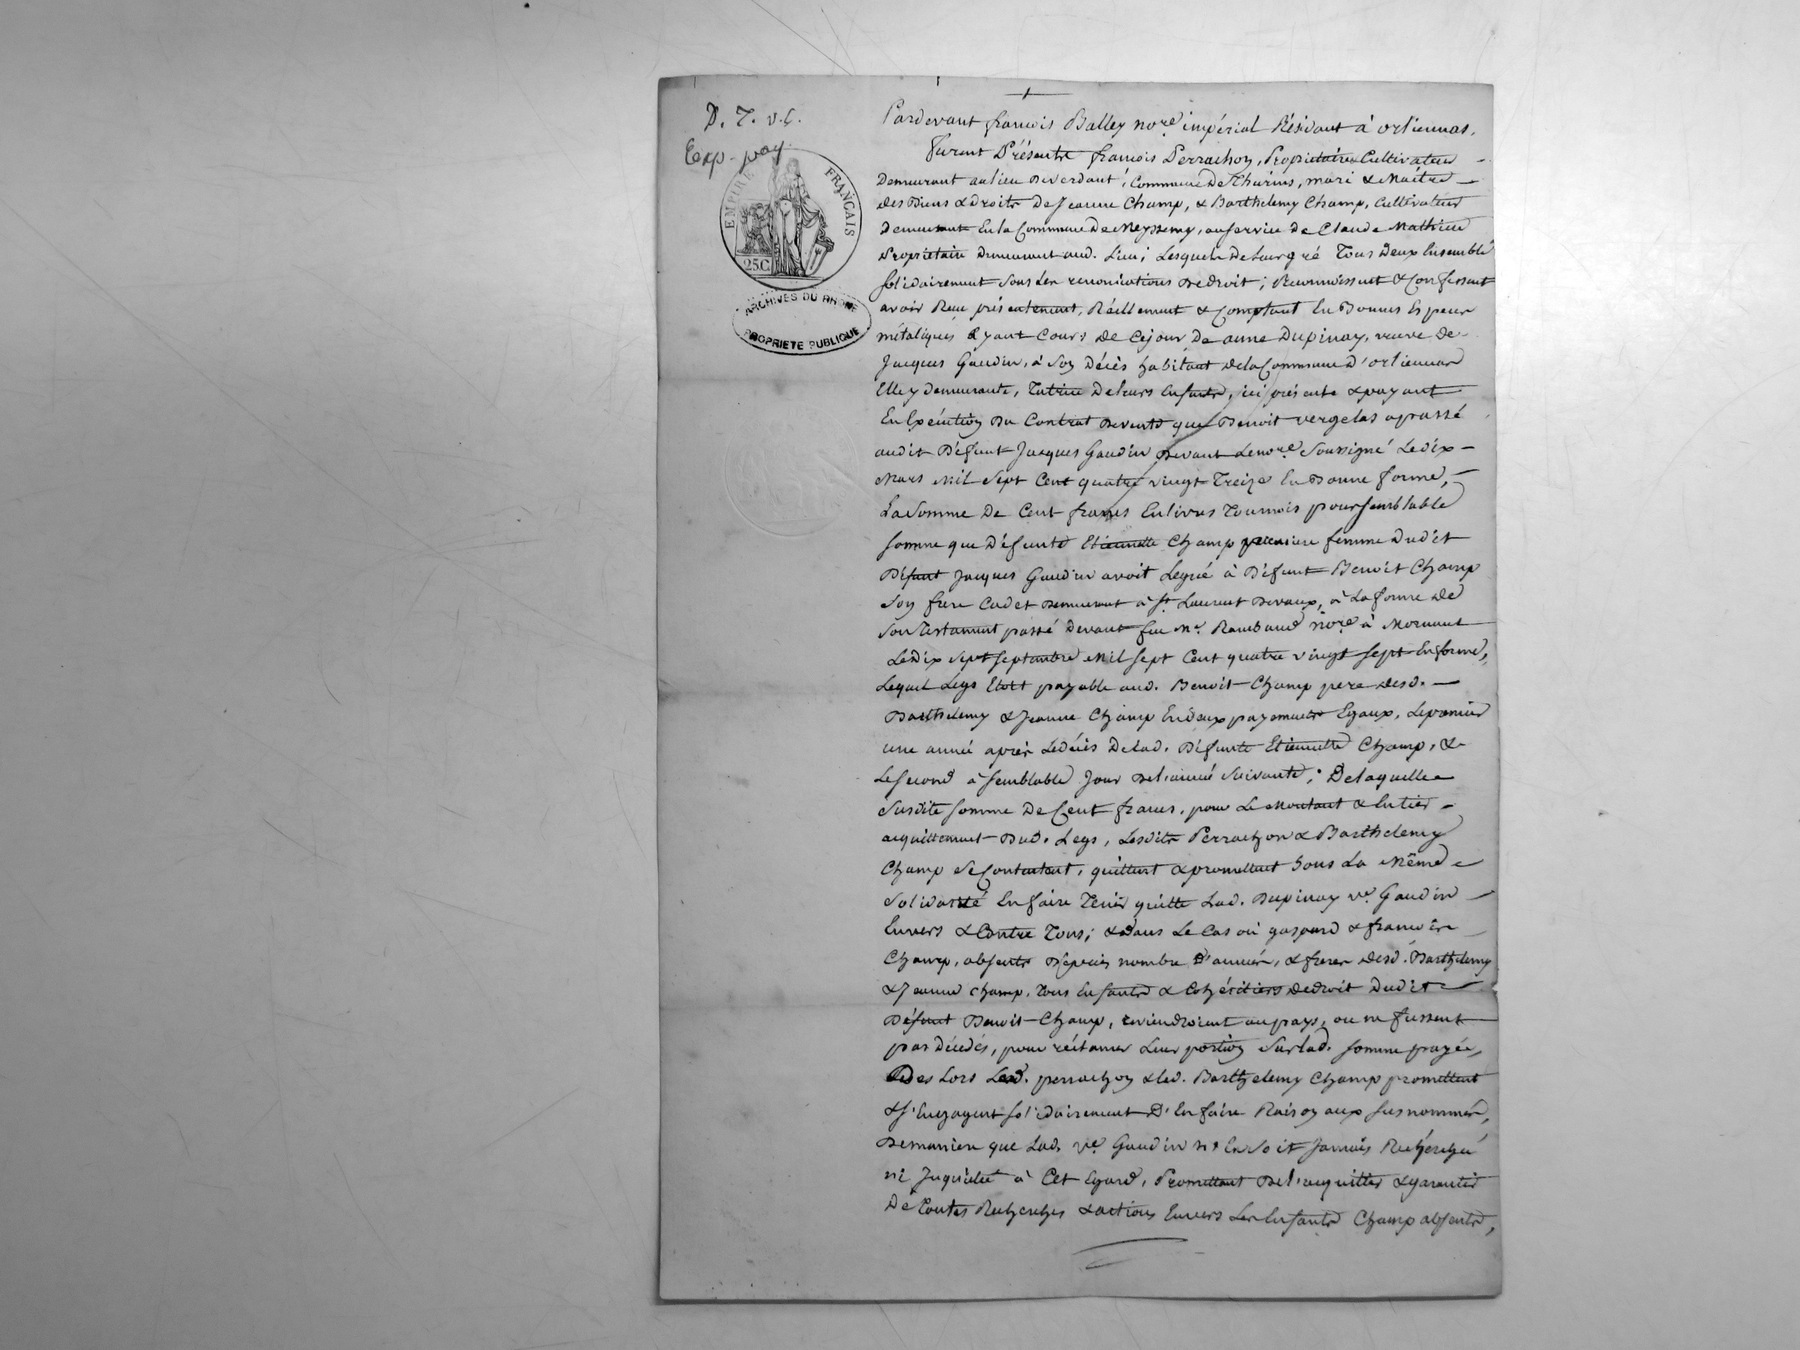 D. T. v. C.
Exp. pay
EMPIRE FRANÇAIS
25C
ARCHIVES DU RHONE
PROPRIETE PUBLIQUE
Pardevant françois Balley nore impérial Résidant à orliennas,
furent Présents françois Perrachon, Propriétaire Cultivateur
Demeurant au lieu De verdant, Commune De Thurins, mari & Maître
des Biens & droits De Jeanne Champ, & Barthelemy Champ, Cultivateur
Demeurant En la Commune De Meyssemy, au service de Claude Mathieu
Propriétaire Demeurant aud. Lieu; Lesquels De leur gré Tous Deux Ensemble
solidairement sous les renonciations De droit; Reconnoissent & Confessent
avoir Reçu présentement, Réellement & Comptant En Bonnes Especes
métaliques ayant Cours de Cejour De anne Dupinay, veuve de
Jacques Gaudin, à Son Décès habitant de la Commune D'orliennas
Elle y demeurante, Tutrice De leurs Enfants, ici présente & payant
En Exécution Du Contrat De vente que Benoit vergelas a passé
audit Défunt Jacques Gaudin Devant Le nore Soussigné Le dix
Mars Mil Sept Cent quatre vingt Treize En Bonne forme,
La Somme De Cent francs En livres Tournois pour semblable
somme que Défunte Etiennette Champ premiere femme Dudit
Défunt Jacques Gaudin avoit Legué à Défunt Benoit Champ
Son frere Cadet Demeurant à St Laurent De vaux, à La forme de
Son Testament passé Devant feu Me Rambaud nore à Mornant
Le dix Sept Septembre Mil Sept Cent quatre vingt Sept En forme,
Lequel Legs Etoit payable aud. Benoit Champ pere desd.
Barthelemy & Jeanne Champ En deux payements Egaux, Le premier
une année après Le décès De lad. Défunte Etiennette Champ, &
Le Second à Semblable Jour De l'année Suivante; De laquelle
Susdite Somme De Cent francs, pour Le Montant & Entier
acquittement Dud. Legs, Lesdits Perrachon & Barthelemy
Champ Se Contentent, quittent & promettent Sous La Même
Solidarité En faire Tenir quitte Lad. Dupinay ve Gaudin
Envers & Contre Tous; & dans Le Cas où gaspard & françois
Champ, absents Depuis nombre D'années, & freres desd. Barthelemy
& Jeanne Champ, Tous Enfants & Cohéritiers De droit Dudit
Défunt Benoit Champ, reviendroient au pays, ou ne fussent
pas Décédés, pour réclamer Leur portion Sur lad. Somme payée,
Des Lors Led. perrachon & led. Barthelemy Champ promettent
& s'Engagent solidairement D'En faire Raison aux susnommés,
De maniere que Lad. ve Gaudin n'En Soit Jamais Recherchée
ni Inquiétée à Cet Egard, Promettant De l'acquitter & garantir
De Toutes Recherches & actions Envers Les Enfants Champ absents,